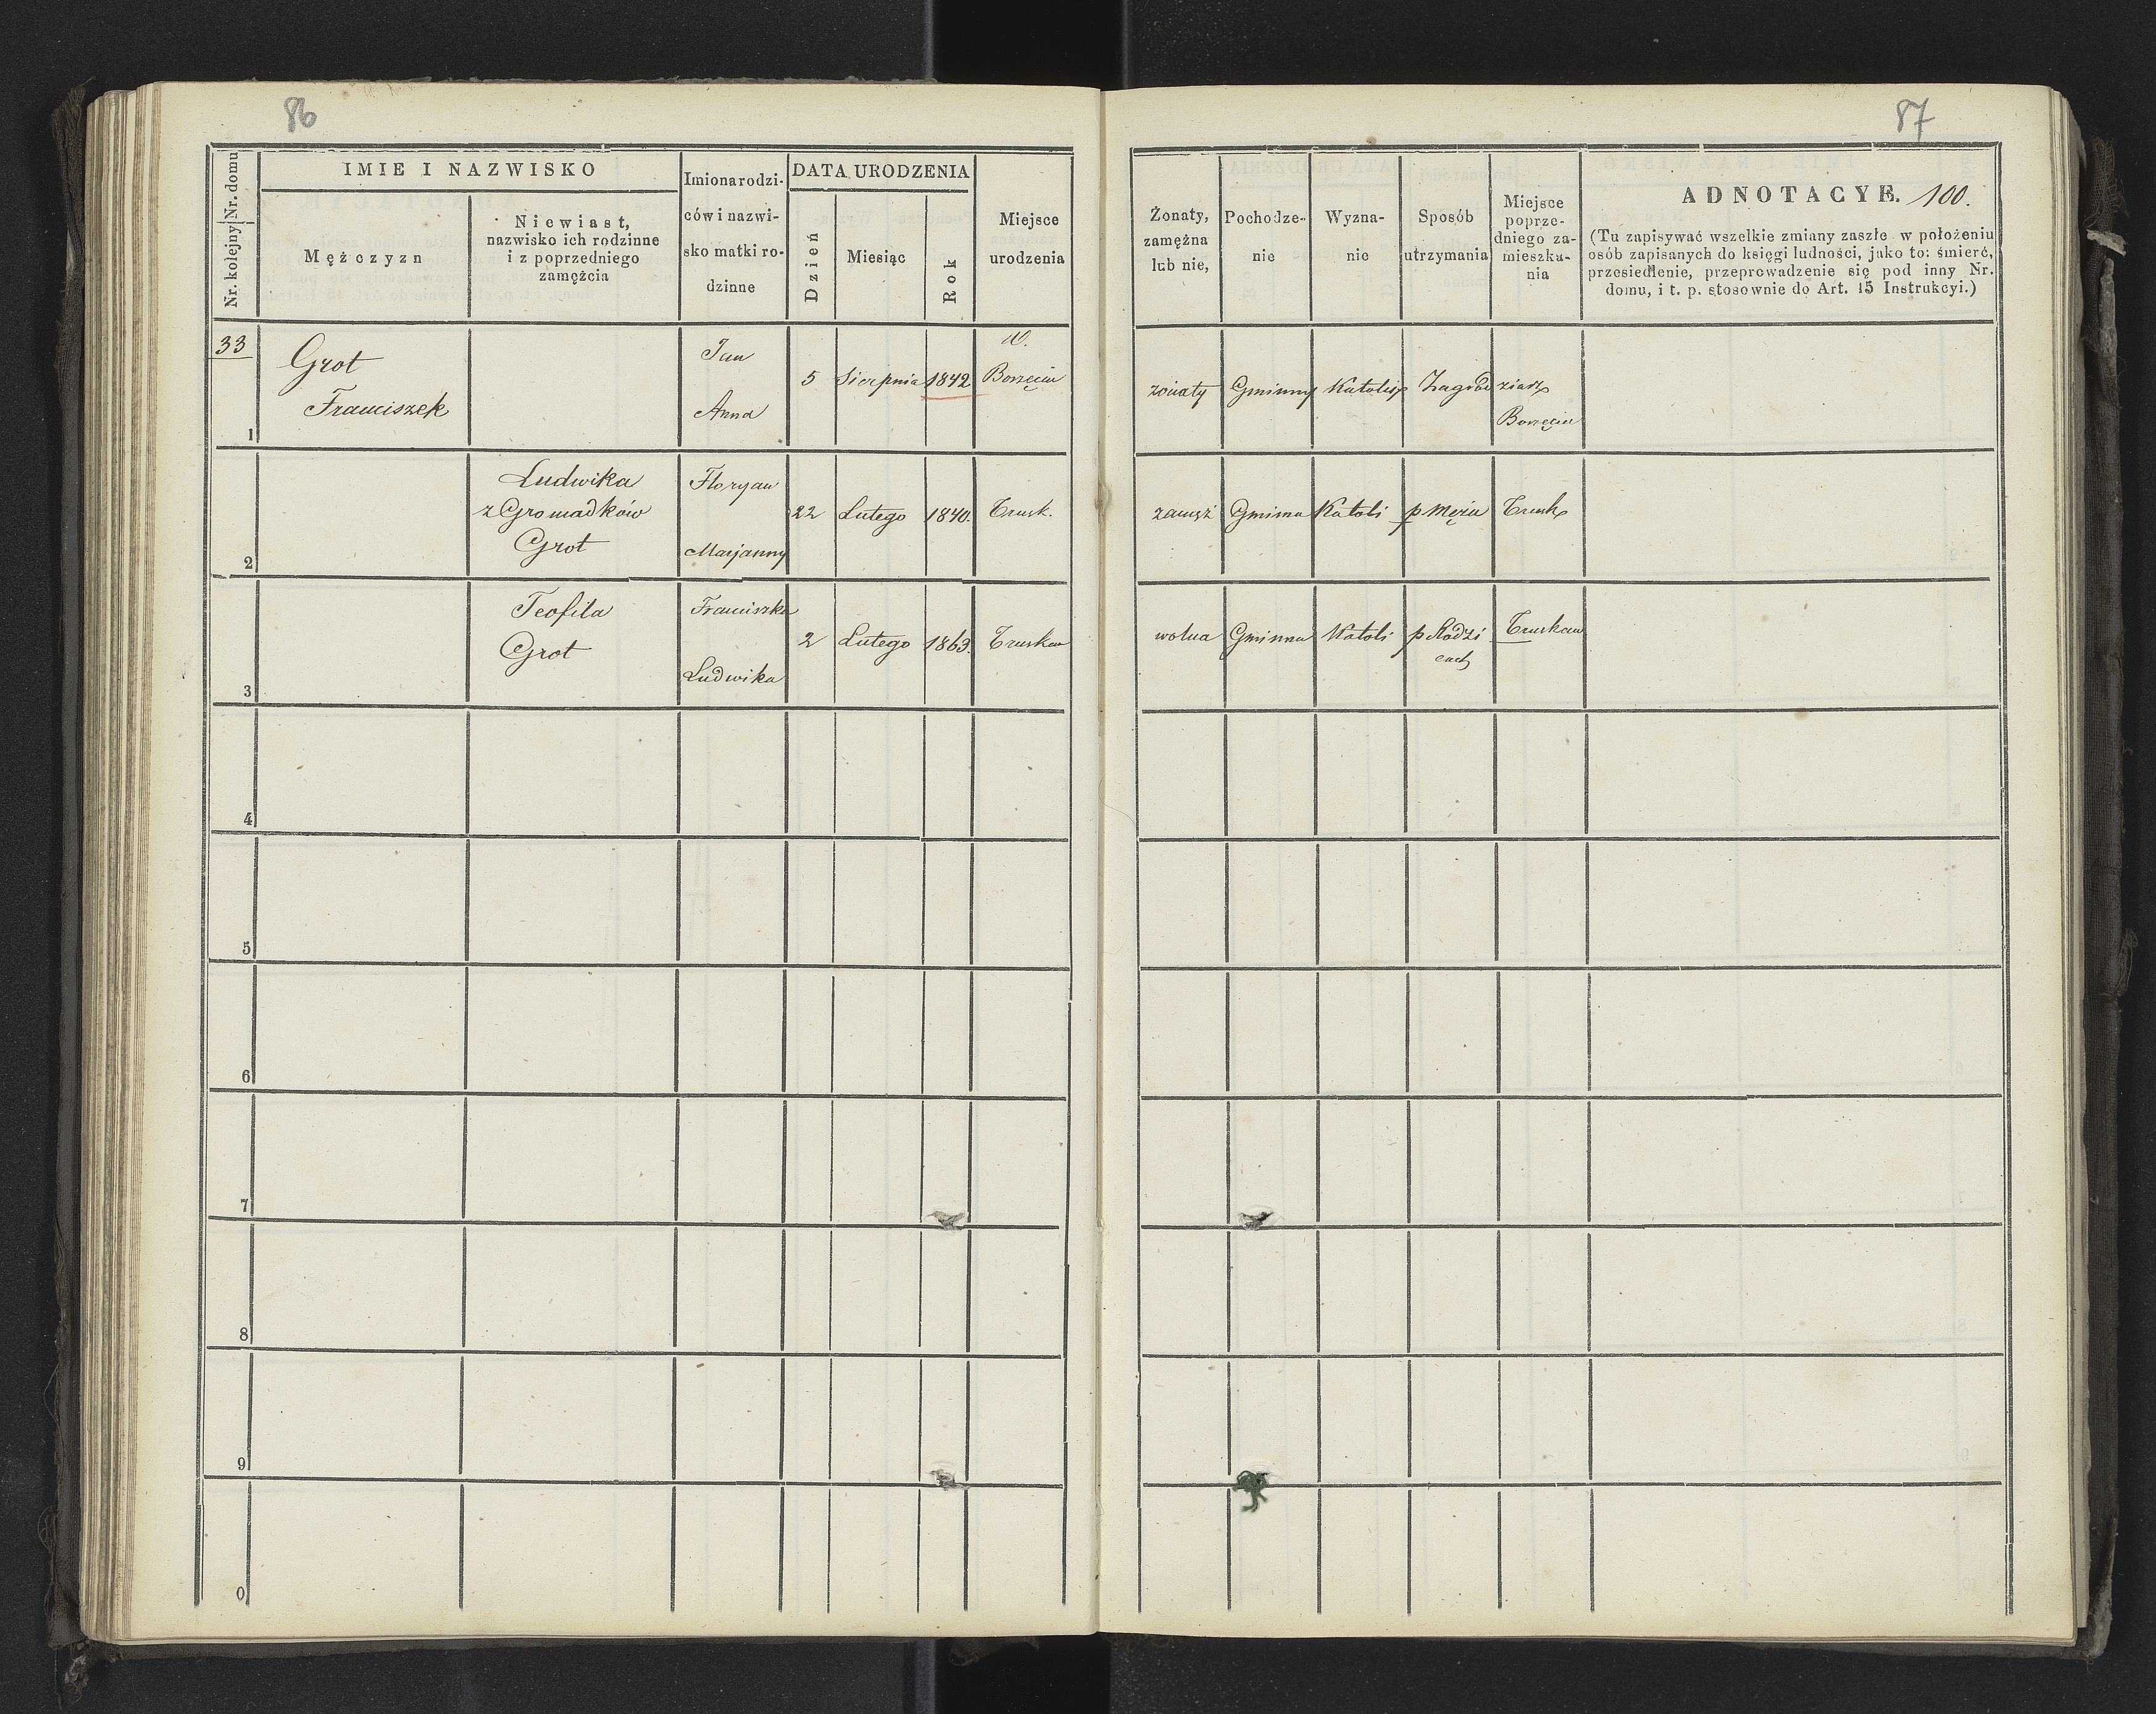 86
Nr. kolejny Nr. domu
IMIE I NAZWISKO
Mężczyzn
Niewiast,
nazwisko ich rodzinne
i z poprzedniego
zamężcia
Imiona rodzi-
ców i nazwi-
sko matki ro-
dzinne
DATA URODZENIA
Dzień
Miesiąc
Rok
Miejsce
urodzenia
33
Grot
Franciszek
Jan
Anna
5 Sierpnia 1842
Borzęcin
1
Ludwika
z Gromadków
Grot
Floryan
Marjanny
22 Lutego 1840. Trusk.
2
Teofila
Grot
Franciszka
Ludwika
2 Lutego 1863. Truskaw
3
4
5
6
7
8
9
0
87
Żonaty,
zamężna
lub nie,
Pochodze-
nie
Wyzna-
nie
Sposób
utrzymania
Miejsce
poprze-
dniego za-
mieszka-
nia
ADNOTACYE. 100.
(Tu zapisywać wszelkie zmiany zaszłe w położeniu
osób zapisanych do księgi ludności, jako to: śmierć,
przesiedlenie, przeprowadzenie się pod inny Nr.
domu, i t. p. stosownie do Art. 15 Instrukcyi.)
żonaty Gminny Katolik
Borzęcin
Gminna Katoli p Mężu Trusk
wolna Gminna Katoli p Rodzi Truskaw
cach